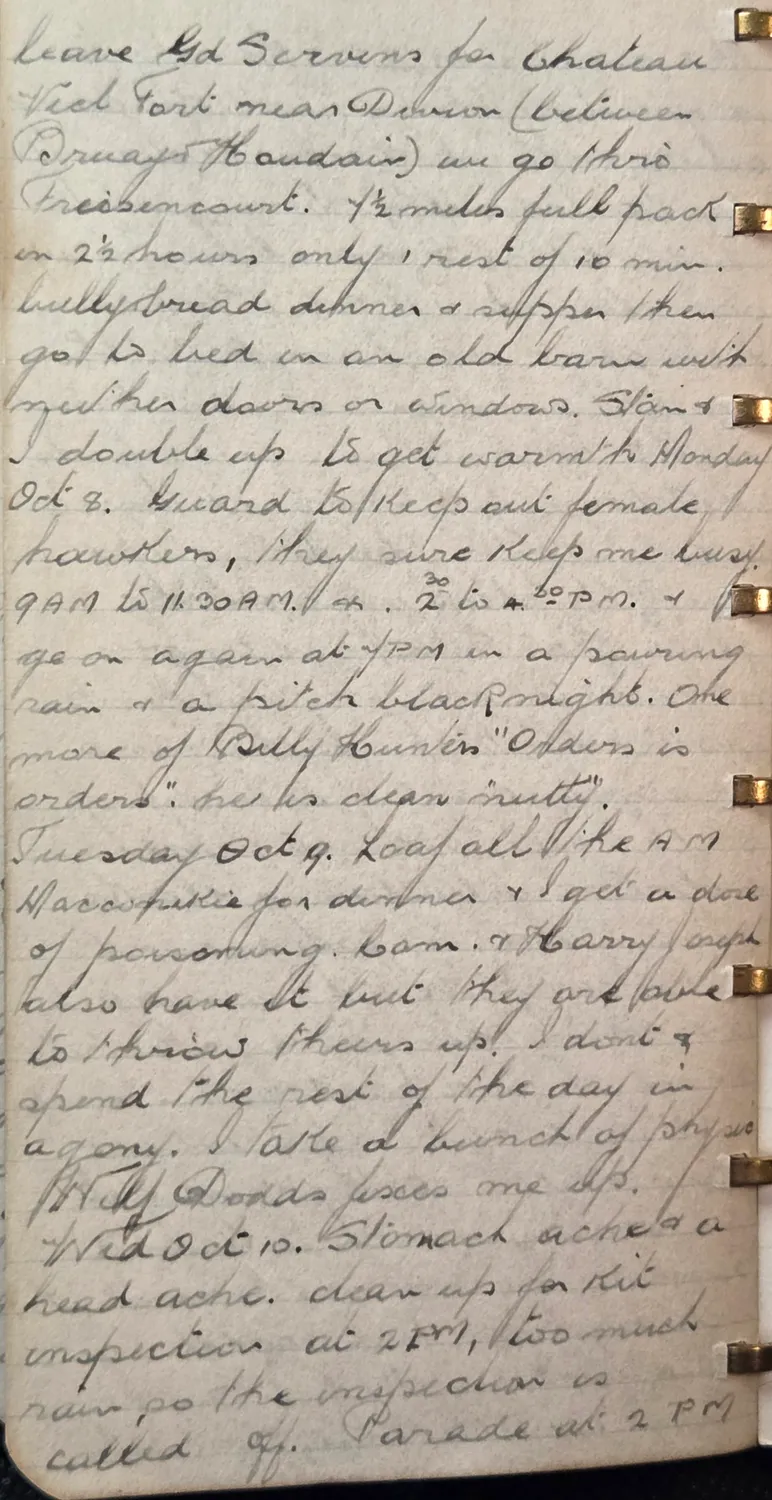 leave Gd Servens for Chateau
Viel Fort near Divion (between
Bruay & Houdain) we go thro
Freisencourt. 7½ miles full pack
in 2½ hours only 1 rest of 10 min.
bully bread dinner & supper then
go to bed in an old barn with
neither doors or windows. Stan &
I double up to get warmth Monday
Oct 8. Guard to keep out female
hawkers, they sure keep me busy.
9 AM to 11.30 AM. & . 2 30 to 4 30 PM. &
go on again at 7 PM in a pouring
rain & a pitch black night. One
more of Billy Hunters "Orders is
orders". he is clean "nutty".
Tuesday Oct 9. Loaf all the AM
Macconikie for dinner & I get a dose
of poisoning. Cam. & Harry Joseph
also have it but they are able
to throw theirs up. I dont &
spend the rest of the day in
agony. I take a bunch of physic
Wilf Dodds fixes me up.
Wed Oct 10. Stomach ache & a
head ache. clean up for Kit
inspection at 2 PM, too much
rain so the inspection is
called off. Parade at 2 PM